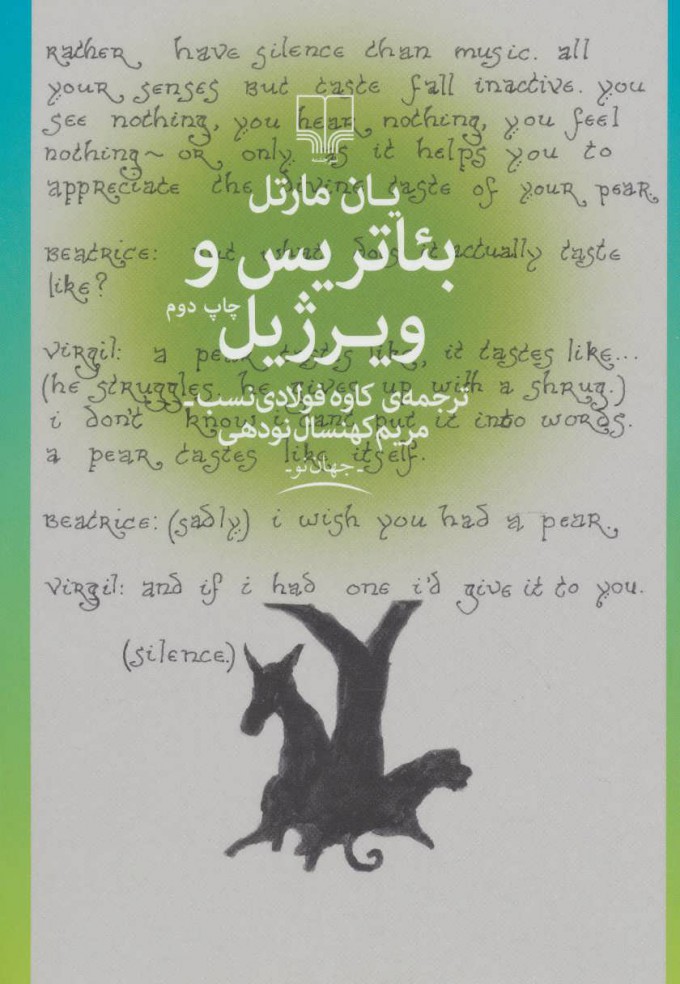 Rather have silence than music. all
your senses but taste fall inactive. you
see nothing, you hear nothing, you feel
nothing~ or only as it helps you to
appreciate the divine taste of your pear.
چشمه
یان مارتل
Beatrice: but what does it actually taste
like?
بئاتریس و
ویرژیل
چاپ دوم
Virgil: a pear tastes like, it tastes like...
(he struggles. he gives up with a shrug.)
i don't know. i can't put it into words.
a pear tastes like itself.
ترجمه‌ی کاوه فولادی‌نسب ـ
مریم کهنسال نودهی
ـ جهان نو ـ
Beatrice: (sadly) i wish you had a pear.
Virgil: and if i had one i'd give it to you.
(silence.)